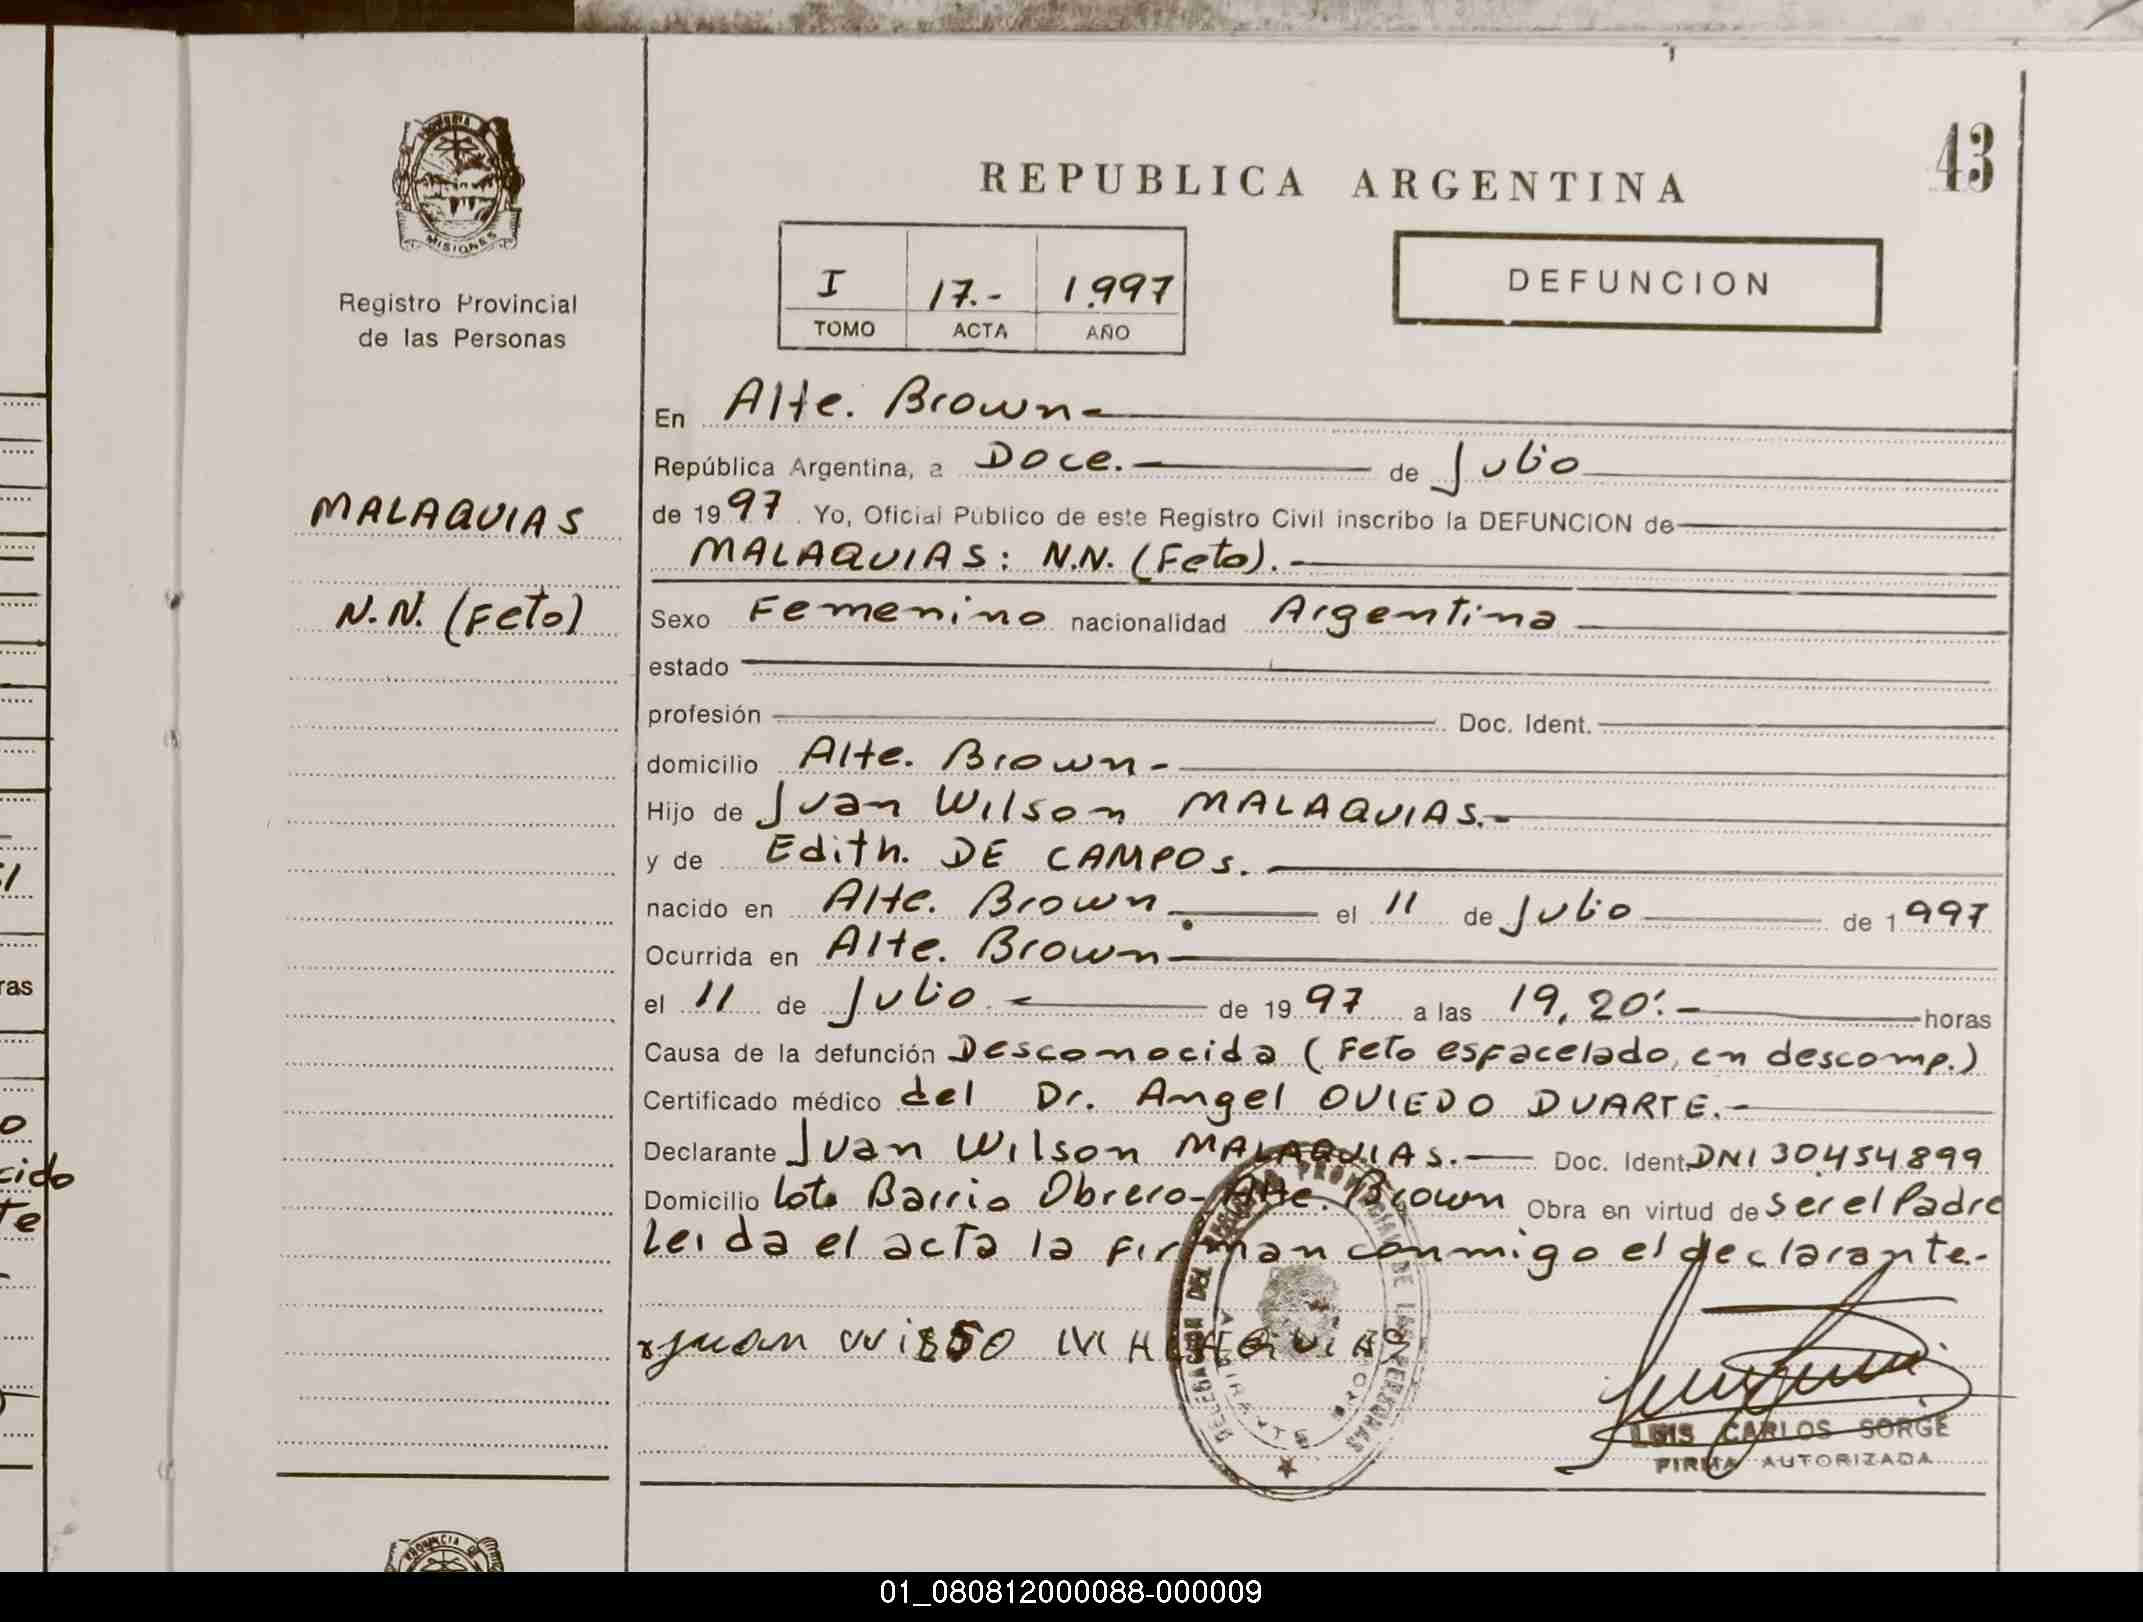 43
PROVINCIA
MISIONES
Registro Provincial
de las Personas
REPUBLICA ARGENTINA
I 17.- 1.997
TOMO ACTA AÑO
DEFUNCION
MALAQUIAS
N.N. (Feto)
En Alte. Brown-
República Argentina, a Doce.- de Julio
de 1997. Yo, Oficial Público de este Registro Civil inscribo la DEFUNCION de
MALAQUIAS: N.N. (Feto).-
Sexo Femenino nacionalidad Argentina
estado
profesión Doc. Ident.
domicilio Alte. Brown-
Hijo de Juan Wilson MALAQUIAS.-
y de Edith. DE CAMPOS.
nacido en Alte. Brown. el 11 de Julio de 1997
Ocurrida en Alte. Brown-
el 11 de Julio.- de 1997 a las 19,20'.- horas
Causa de la defunción Desconocida (Feto esfacelado, en descomp.)
Certificado médico del Dr. Angel OVIEDO DUARTE.-
Declarante Juan Wilson MALAQUIAS.- Doc. Ident. DNI 30.454.899
Domicilio lote Barrio Obrero- Alte. Brown Obra en virtud de Ser el Padre
Leida el acta la firman conmigo el declarante.-
Juan Wilso MALAQUIAS
LUIS CARLOS SORGE
FIRMA AUTORIZADA
ras
cido
te
01_080812000088-000009